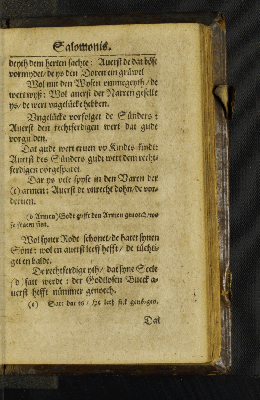 Salomonis.
deyth dem herten sachte: Auerst de dat böse
vormydet/ de ys den Doren ein grüwel
Wol mit den Wysen vmmegeyth/ de
wert wyß: Wol auerst der Narren geselle
ys/ de wert vngelücke hebben.
Vngelücke vorfolget de Sünders:
Auerst den rechtferdigen wert dat gude
vorgulden.
Dat gude wert eruen vp Kindes kindt:
Auerst des Sünders gudt wert dem recht-
ferdigen vorgespart.
Dar ys vele spyse in den Varen der
armen: Auerst de vnrecht dohn/ de vor-
deruen.
Armen) Godt gifft den Armen genoech/ wo
se fram sint.
Wol syner Rode schonet/ de hatet synen
Sone: wol en auerst leeff hefft/ de tüchti-
get en balde.
De rechtferdige yth/ dat syne Seele
satt werde: der Godtlosen Buck a-
uerst hefft nümmer genoech.
Satt
Dat